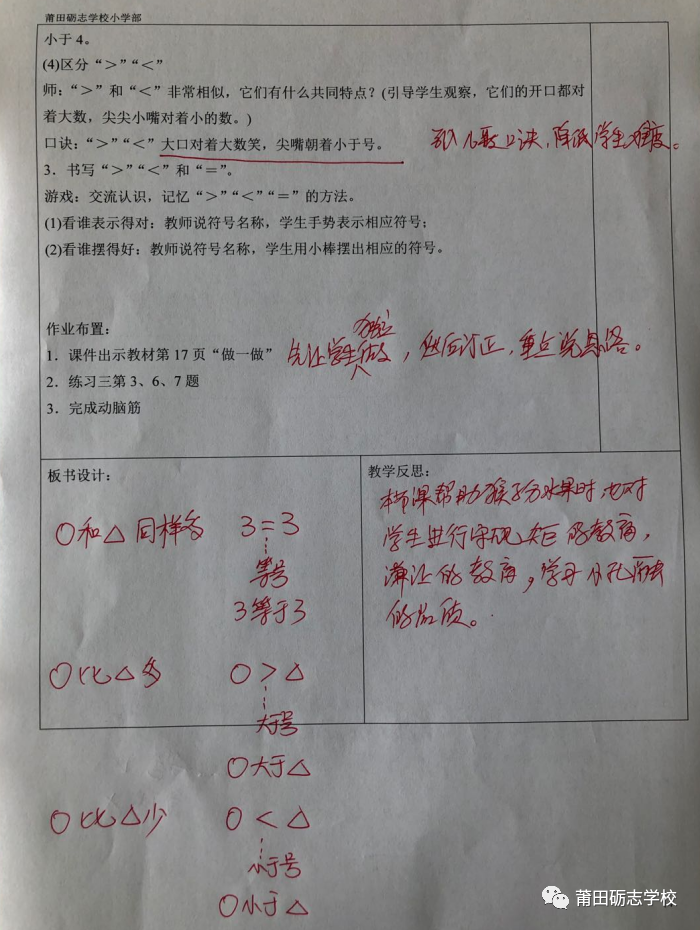 莆田砺志学校小学部
小于 4。
(4)区分“＞”“＜”
师：“＞”和“＜”非常相似，它们有什么共同特点？(引导学生观察，它们的开口都对
着大数，尖尖小嘴对着小的数。)
口诀：“＞”“＜”大口对着大数笑，尖嘴朝着小于号。
口诀，降低学生难度。
3．书写“＞”“＜”和“＝”。
游戏：交流认识，记忆“＞”“＜”“＝”的方法。
(1)看谁表示得对：教师说符号名称，学生手势表示相应符号；
(2)看谁摆得好：教师说符号名称，学生用小棒摆出相应的符号。
作业布置：
1．课件出示教材第 17 页“做一做”
先让学生独立做，然后订正，重点说思路。
2．练习三第 3、6、7 题
3．完成动脑筋
板书设计：
○和△同样多 3＝3
等号
3等于3
○比△多 ○＞△
大于号
○大于△
○比△少 ○＜△
小于号
○小于△
教学反思：
本节课帮助猴子分水果时，也对
学生进行守规矩的教育，
谦让的教育，学习孔融
的品质。
莆田砺志学校